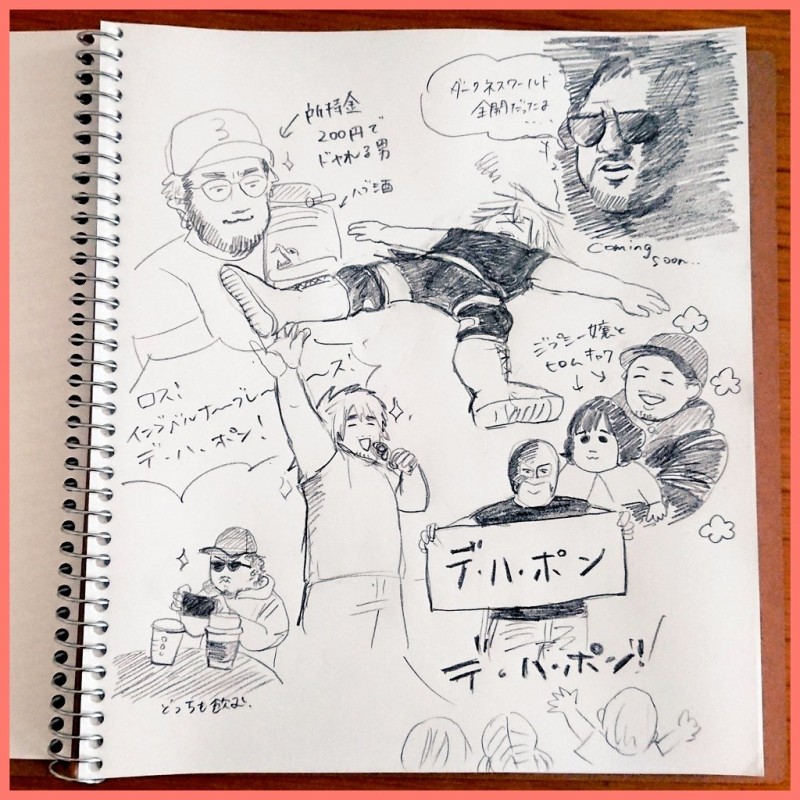 ダークネスワールド
全開だったよ
....
所持金
200円で
ドヤれる男
ハブ酒
3
coming
soon...
ジプシー嬢と
ヒロムキャワ
ロス!
インゴベルナ〜ブレ〜
〜ズ!
デ・ハ・ポン!
デ・ハ・ポン
デ・ハ・ポン!
どっちも飲む。